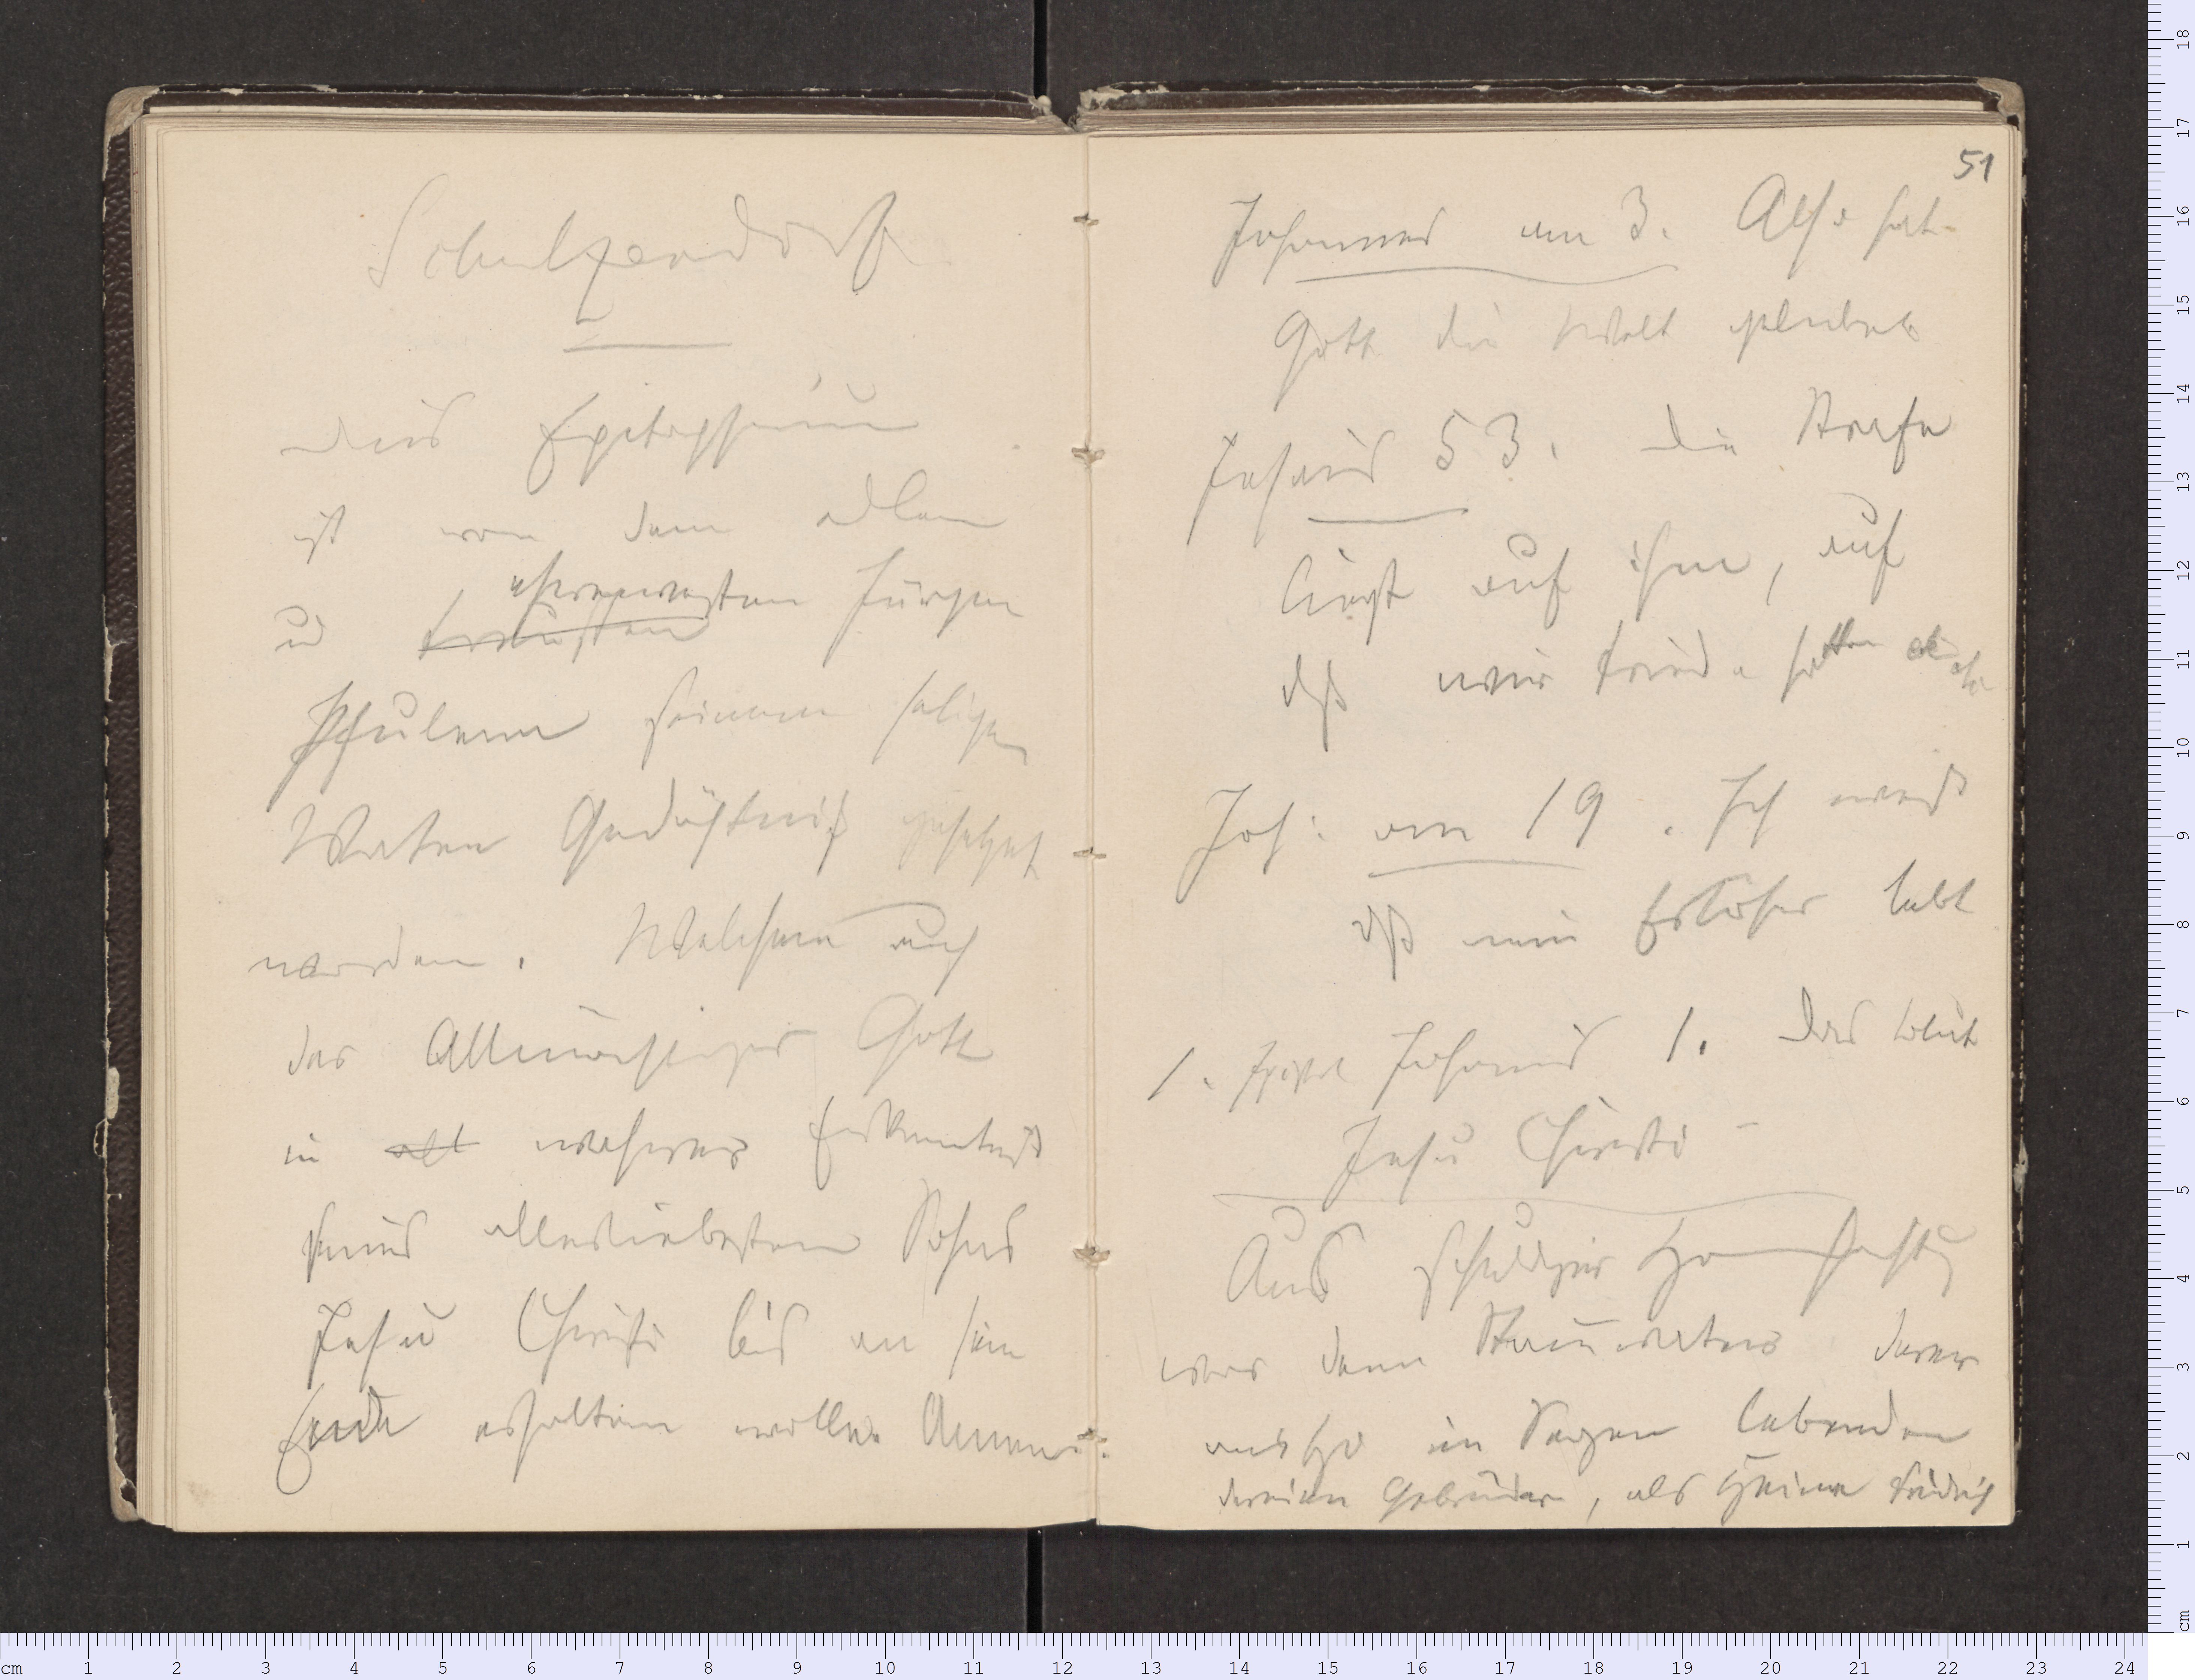 Schulzendorf
Dies Epitaphium
ist von dem edlen
ehrenvesten Jürgen
u
Pfulenn seinem seligen
Vater Gedächtniß gesetzet
worden. Welchen auch
der Allmächtiger Gott
in all wahrer Erkenntniß
seines allerliebesten Sohns
Jesu Christi bis an sein
Ende erhalten wolle. Amen.
51
Johannes am 3. Also hat
Gott die Welt geliebet
Jesaias 53. Die Strafe
liegt auf ihm, auf
daß wir Friede hätten
Joh: am 19. Ich weiß
daß mein Erlöser lebt
1. Epistel Johannis 1. Das Blut
Jesu Christi –
Aus schuldiger
dem derer
im Segen lebenden
Gebrüder, als Heine Friedrich